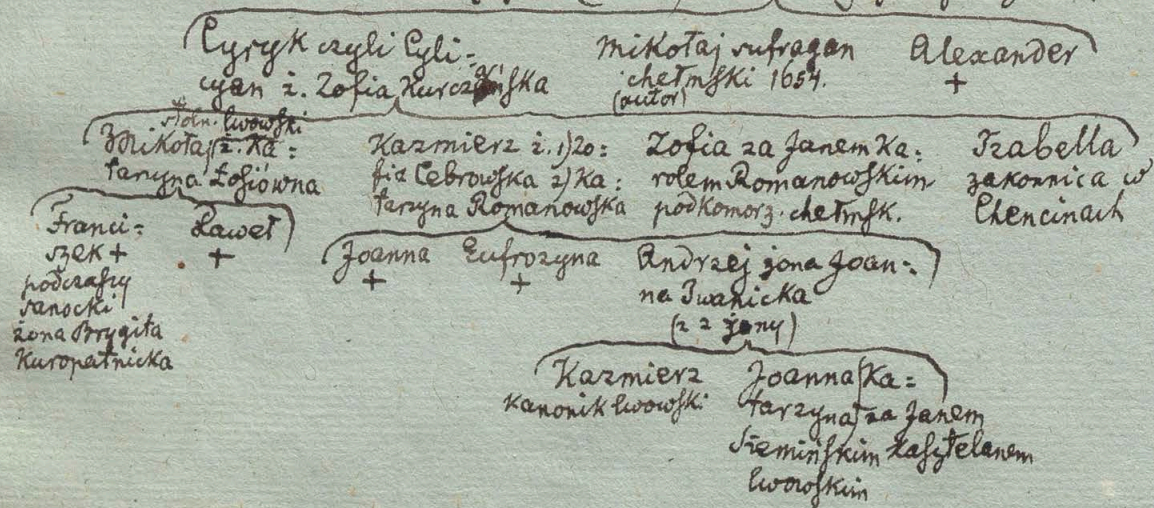 Cyryk czyli Cyli=
cyan ż. Zofia Kurczańska
Mikołaj sufragan
chełmski 1654.
(autor)
Alexander
+
stoln. lwowski
Mikołaj ż. Ka=
tarzyna Łosiówna
Kazmierz ż. 1) Zo=
fia Cebrowska 2) Ka=
tarzyna Romanowska
Zofia za Janem Ka=
rolem Romanowskim
podkomorz. chełmsk.
Izabella
zakonnica w
Chencinach
Franci=
szek +
podczaszy
sanocki
żona Brygita
Kuropatnicka
Paweł
+
Joanna
+
Eufrozyna
+
Andrzej żona Joan=
na Iwanicka
(z 2 żony)
Kazmierz
kanonik lwowski
Joanna (Ka=
tarzyna) za Janem
Siemińskim kasztelanem
lwowskim